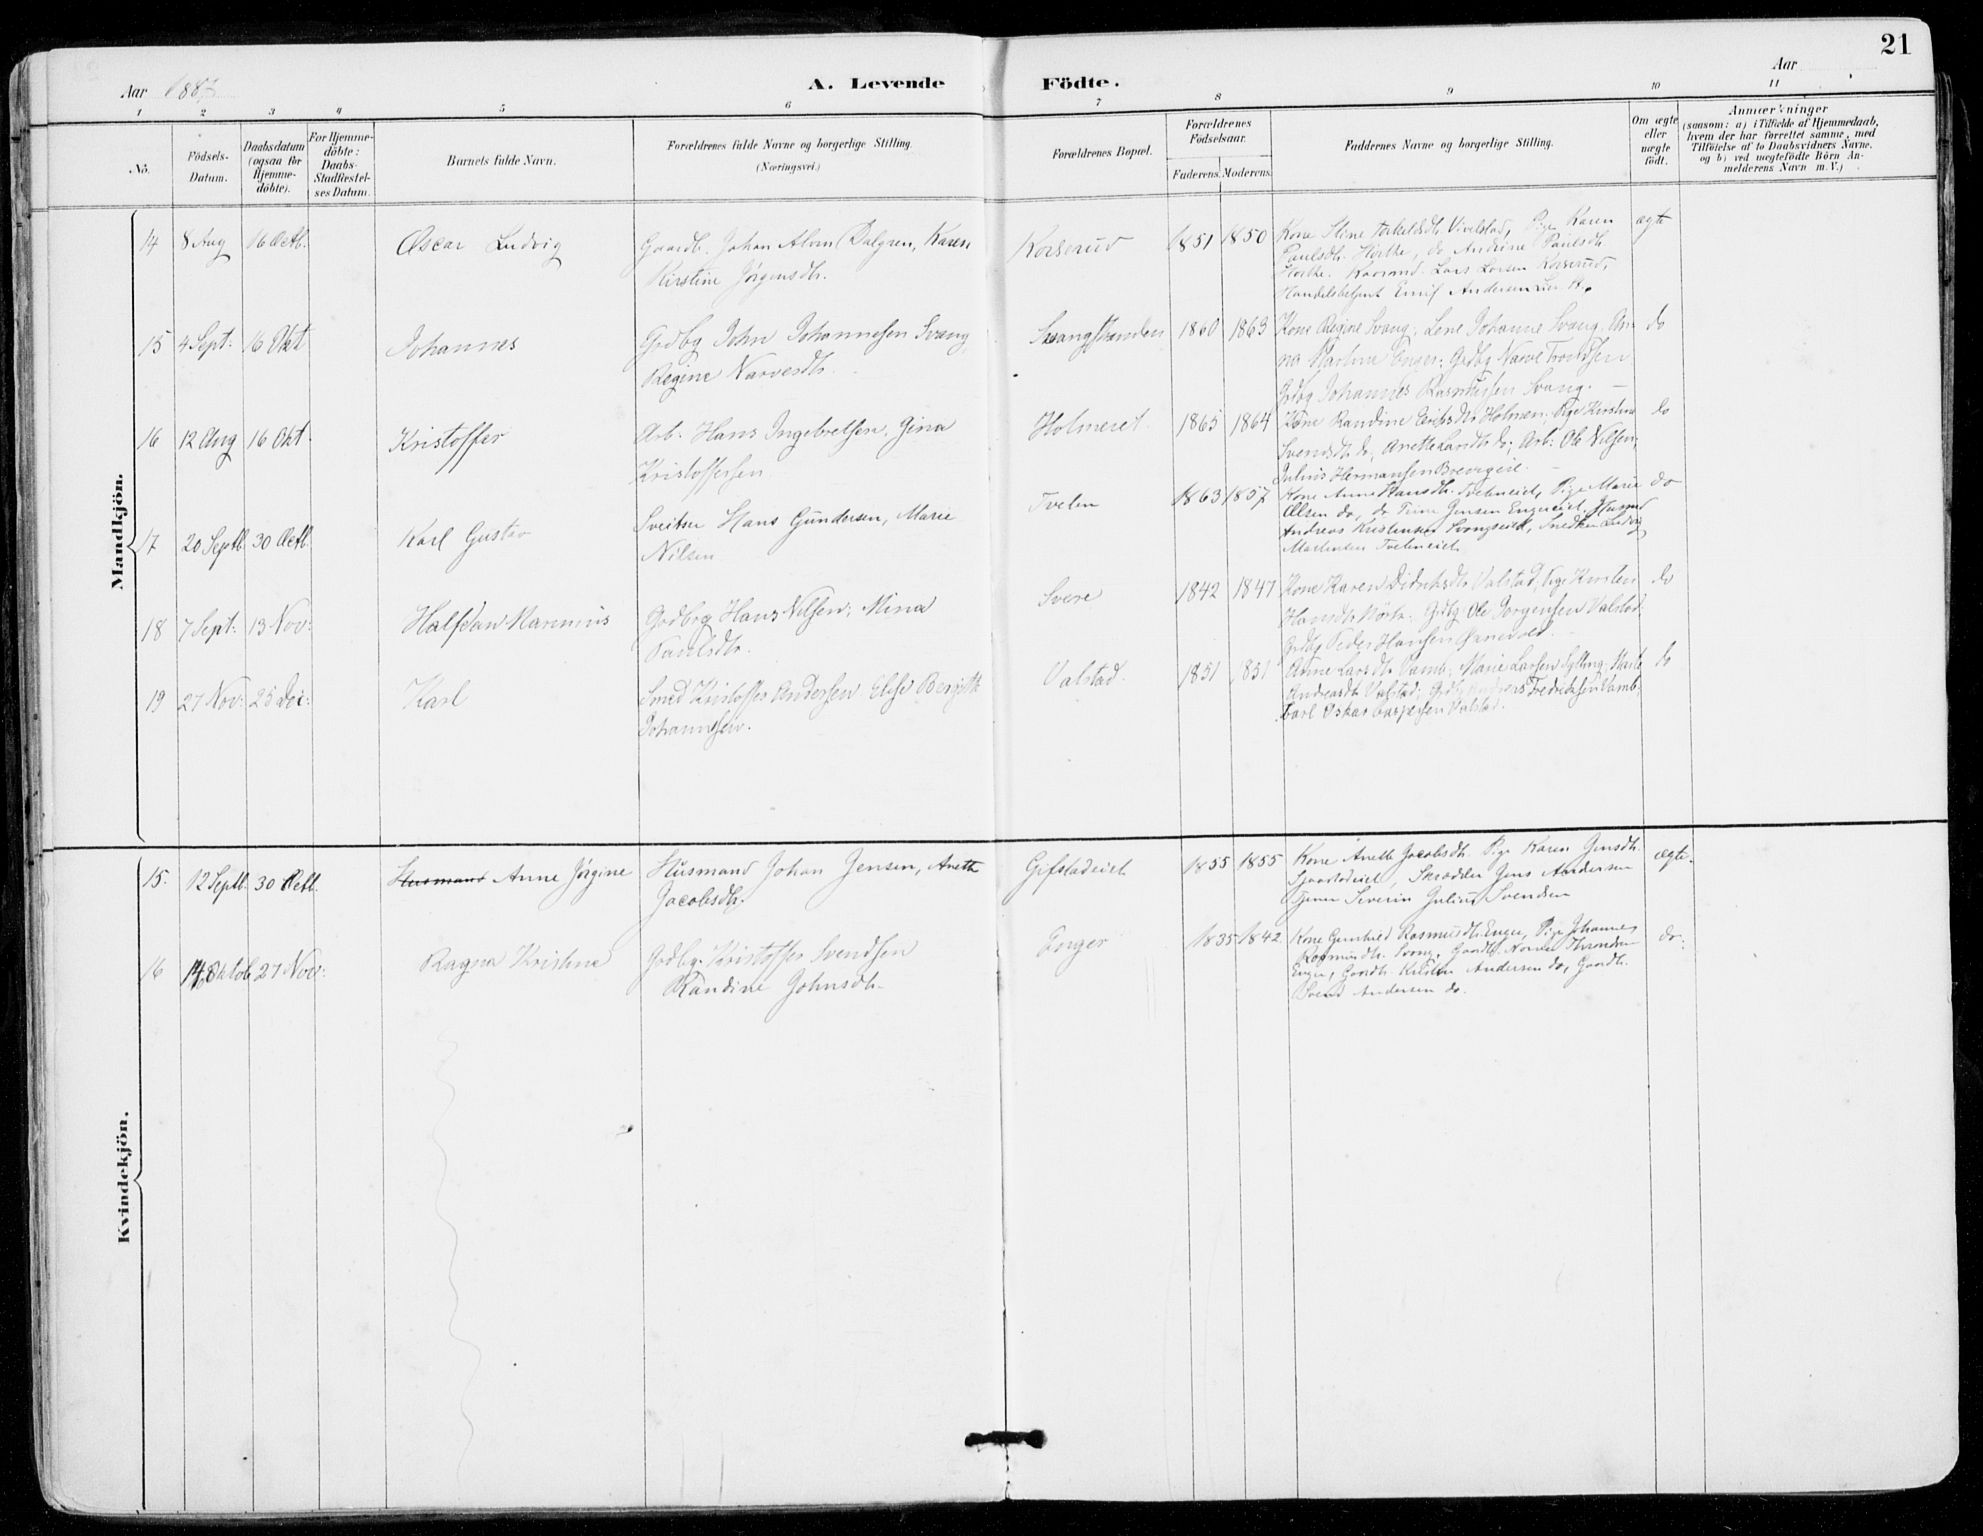 21
Aar 1887 A. Levende Födte. Aar
1 2 3 4 5 6 7 8 9 10 11
No.
Födsels-
Datum.
Daabsdatum
(ogsaa for
Hjemme-
döbte).
For Hjemme-
döbte:
Daabs-
Stadfæstel-
ses Datum.
Barnets fulde Navn.
Forældrenes fulde Navne og borgerlige Stilling.
(Næringsvei.)
Forældrenes Bopæl.
Forældrenes
Födselsaar.
Faderens. Moderens.
Faddernes Navne og borgerlige Stilling.
Om ægte
eller
uægte
födt.
Anmærkninger
(saasom: a) i Tilfælde af Hjemmedaab,
hvem der har forrettet samme, med
Tilföielse af to Daabsvidners Navne,
og b) ved uægtefödte Börn An-
melderens Navn m. V.)
Mandkjön.
14 8 Aug 16 Octb. Oscar Ludvig
Gaardb. Johan Alvin Dalgren, Karen
Kirstine Jörgensdtr.
Korserud 1851 1850
Kone Stine Vivelstad, Pige Karen
Paulsdtr. Hörthe, do Andrine Paulsdtr.
Hörthe. Lars Larsen Korserud,
Handelsbetjent Emil Andersen
ægte
15 4 Sept: 16 Okt Johannes
Grdbg John Johannesen Svang
Regine Narvesdtr.
Svangstranden 1860 1863
Kone Regine Svang, Lene Johanne Svang, An-
na Karline Enger: Grdbg Narve Trondsen
Grdbg Johannes Rasmussen Svang.
do
16 12 Aug 16 Okt. Kristoffer
Arb. Hans Ingebretsen, Gina
Kristoffersen
Holmeeiet. 1865 1864
Kone Randine Eriksdtr Holmen. Pige Kirstine
Svendsdtr do, Anette do; Arb: Ole Nilsen,
Julius Hermansen
do
17 20 Septb. 30 Octb. Karl Gustav
Sveitser Hans Gundersen, Marie
Nilsen
Tveten 1863 1857
Kone Anne Hansdtr. Tveteneiet, Pige Marie
Olsen do, do Trine Jensen Engereiet, Husmd
Andreas Kristensen Svangseiet, Snedker Ludvig
Martinsen Tveteneiet
do
18 7 Sept: 13 Nov: Halfdan Marinius
Grdbrg Hans Nilsen; Mina
Paulsdtr.
Svere 1842 1847
Kone Karen Didriksdtr Valstad, Pige Karen
Hansdtr Grdbg Ole Jörgensen Valstad:
Grdbg Peder Hansen
do
19 27 Nov: 25 Dec: Karl
Smed Kristoffer Andersen Elise Bergitte
Johannesen.
Valstad. 1851 1851
Anne Larsdtr Vamb; Marie Larsen Sylling,
Andreasdtr Valstad; Grdbg Fredriksen Vamb,
Carl Oskar Caspersen Valstad.
do
Kvindekjön.
15. 12 Septb. 30 Octb. Husmand Anne Jörgine
Husmand Johan Jensen, Anette
Jacobsdtr.
Gifstadeiet 1855 1855
Kone Anette Jacobsdtr. Pige Karen Jensdtr.
Skrædder Jens Andersen
Tjener Severin Julius Svendsen
ægte.
16 14 Oktob 27 Nov: Ragna Kristine
Grdbg. Kristoffer Svendsen
Randine Johnsdtr.
Enger 1835 1842
Kone Gunhild Rasmusdtr Enger, Pige Johanne
Rasmusdtr. Svang, Gaardb. Narve Throndsen
Enger, Gaardb. Kristen Andersen do, Gaardb.
Svend Andersen do.
do.